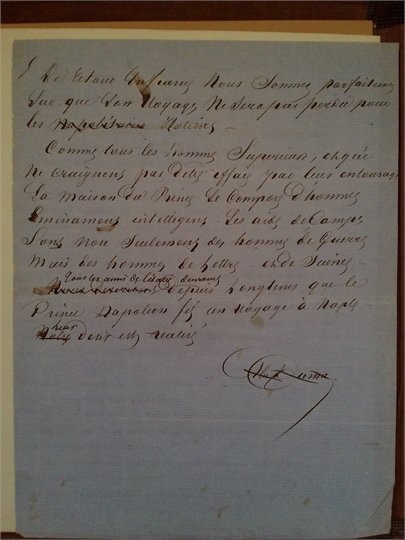 De retour en france nous sommes parfaitement
sur que son voyage ne sera pas perdu pour
les Napolitains
Comme tous les homme superieurs, et qui
ne craignent pas detre effacé par leur entourage
La maison du Prince se compose d'hommes
eminamment intelligens - Les aides de Camps
sont non seulement des homme de Guerre
mais des hommes de Lettre et de Science -
Tous les amis de l'Italie desiraient
depuis Longtems que le
Prince Napoleon fit un voyage à Naple
leur
desir est realisé